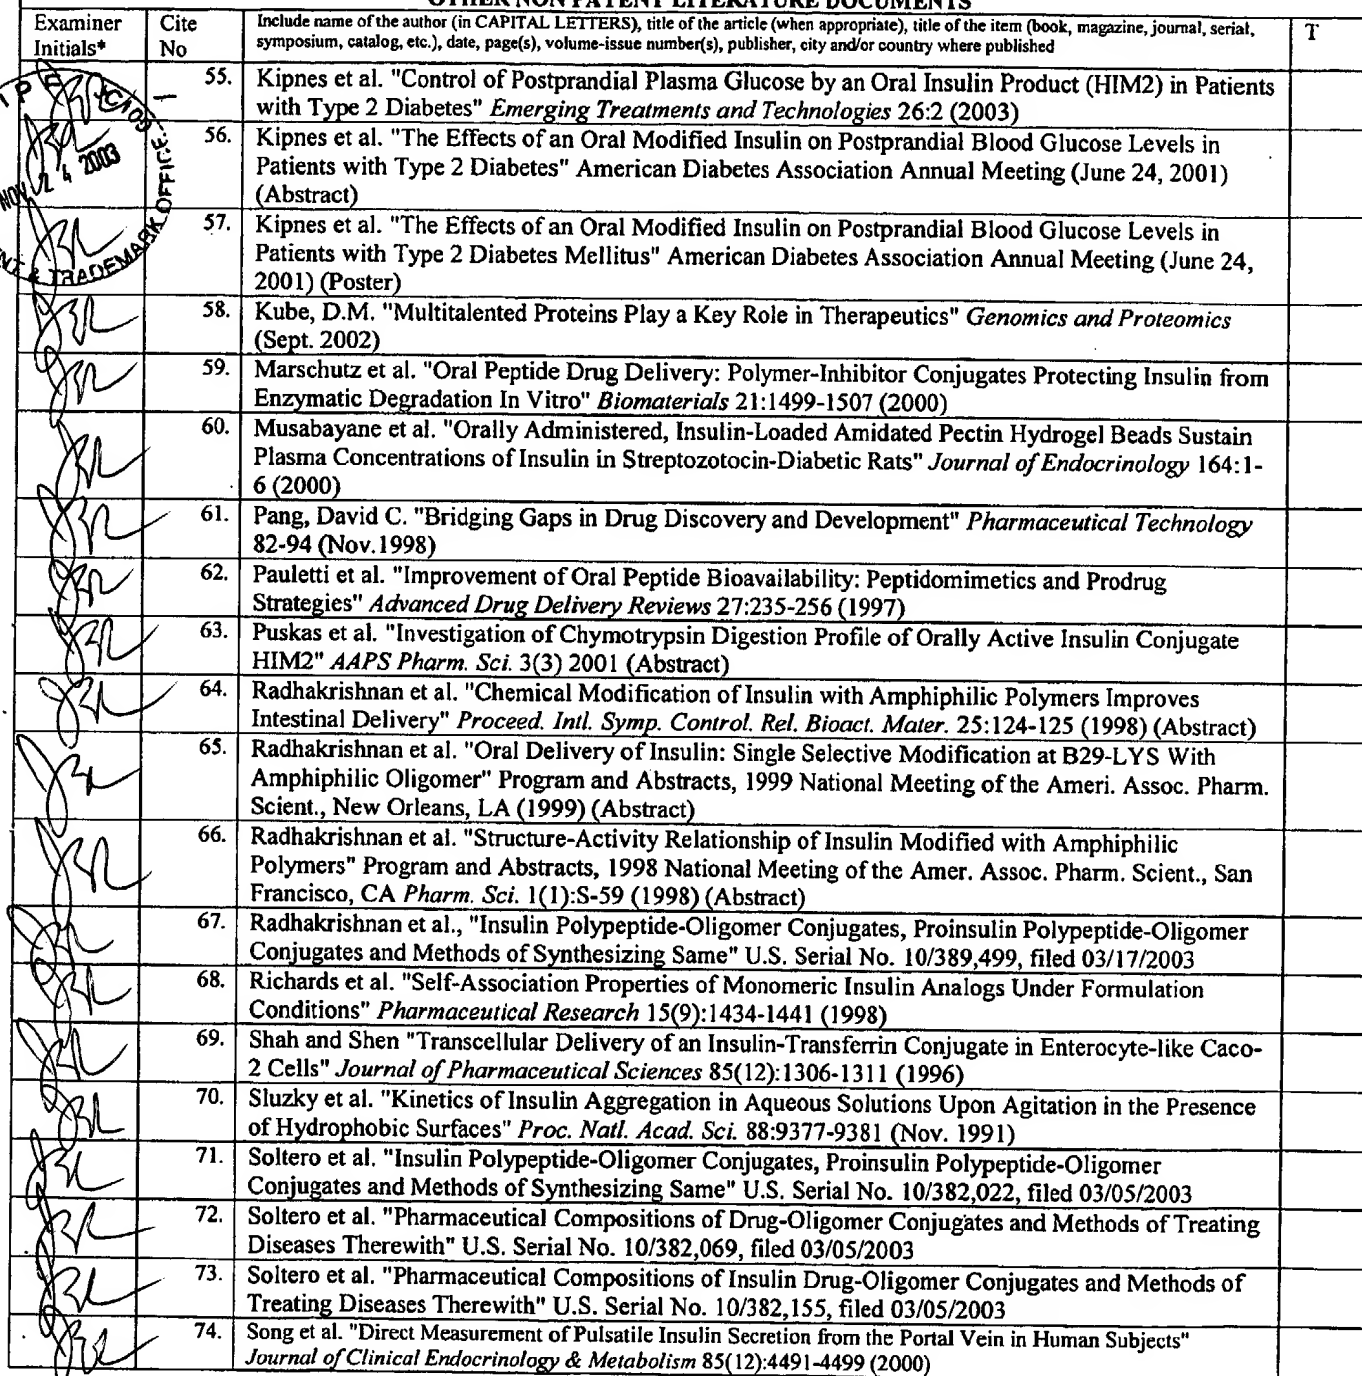 OTHER NON PATENT LITERATURE DOCUMENTS
Examiner Initials*
Cite No
Include name of the author (in CAPITAL LETTERS), title of the article (when appropriate), title of the item (book, magazine, journal, serial,
symposium, catalog, etc.), date, page(s), volume-issue number(s), publisher, city and/or country where published
T
55. Kipnes et al. "Control of Postprandial Plasma Glucose by an Oral Insulin Product (HIM2) in Patients
with Type 2 Diabetes" Emerging Treatments and Technologies 26:2 (2003)
56. Kipnes et al. "The Effects of an Oral Modified Insulin on Postprandial Blood Glucose Levels in
Patients with Type 2 Diabetes" American Diabetes Association Annual Meeting (June 24, 2001)
(Abstract)
57. Kipnes et al. "The Effects of an Oral Modified Insulin on Postprandial Blood Glucose Levels in
Patients with Type 2 Diabetes Mellitus" American Diabetes Association Annual Meeting (June 24,
2001) (Poster)
NOV 24 2003
& TRADEMARK OFFICE
58. Kube, D.M. "Multitalented Proteins Play a Key Role in Therapeutics" Genomics and Proteomics
(Sept. 2002)
59. Marschutz et al. "Oral Peptide Drug Delivery: Polymer-Inhibitor Conjugates Protecting Insulin from
Enzymatic Degradation In Vitro" Biomaterials 21:1499-1507 (2000)
60. Musabayane et al. "Orally Administered, Insulin-Loaded Amidated Pectin Hydrogel Beads Sustain
Plasma Concentrations of Insulin in Streptozotocin-Diabetic Rats" Journal of Endocrinology 164:1-
6 (2000)
61. Pang, David C. "Bridging Gaps in Drug Discovery and Development" Pharmaceutical Technology
82-94 (Nov.1998)
62. Pauletti et al. "Improvement of Oral Peptide Bioavailability: Peptidomimetics and Prodrug
Strategies" Advanced Drug Delivery Reviews 27:235-256 (1997)
63. Puskas et al. "Investigation of Chymotrypsin Digestion Profile of Orally Active Insulin Conjugate
HIM2" AAPS Pharm. Sci. 3(3) 2001 (Abstract)
64. Radhakrishnan et al. "Chemical Modification of Insulin with Amphiphilic Polymers Improves
Intestinal Delivery" Proceed. Intl. Symp. Control. Rel. Bioact. Mater. 25:124-125 (1998) (Abstract)
65. Radhakrishnan et al. "Oral Delivery of Insulin: Single Selective Modification at B29-LYS With
Amphiphilic Oligomer" Program and Abstracts, 1999 National Meeting of the Ameri. Assoc. Pharm.
Scient., New Orleans, LA (1999) (Abstract)
66. Radhakrishnan et al. "Structure-Activity Relationship of Insulin Modified with Amphiphilic
Polymers" Program and Abstracts, 1998 National Meeting of the Amer. Assoc. Pharm. Scient., San
Francisco, CA Pharm. Sci. 1(1):S-59 (1998) (Abstract)
67. Radhakrishnan et al., "Insulin Polypeptide-Oligomer Conjugates, Proinsulin Polypeptide-Oligomer
Conjugates and Methods of Synthesizing Same" U.S. Serial No. 10/389,499, filed 03/17/2003
68. Richards et al. "Self-Association Properties of Monomeric Insulin Analogs Under Formulation
Conditions" Pharmaceutical Research 15(9):1434-1441 (1998)
69. Shah and Shen "Transcellular Delivery of an Insulin-Transferrin Conjugate in Enterocyte-like Caco-
2 Cells" Journal of Pharmaceutical Sciences 85(12):1306-1311 (1996)
70. Sluzky et al. "Kinetics of Insulin Aggregation in Aqueous Solutions Upon Agitation in the Presence
of Hydrophobic Surfaces" Proc. Natl. Acad. Sci. 88:9377-9381 (Nov. 1991)
71. Soltero et al. "Insulin Polypeptide-Oligomer Conjugates, Proinsulin Polypeptide-Oligomer
Conjugates and Methods of Synthesizing Same" U.S. Serial No. 10/382,022, filed 03/05/2003
72. Soltero et al. "Pharmaceutical Compositions of Drug-Oligomer Conjugates and Methods of Treating
Diseases Therewith" U.S. Serial No. 10/382,069, filed 03/05/2003
73. Soltero et al. "Pharmaceutical Compositions of Insulin Drug-Oligomer Conjugates and Methods of
Treating Diseases Therewith" U.S. Serial No. 10/382,155, filed 03/05/2003
74. Song et al. "Direct Measurement of Pulsatile Insulin Secretion from the Portal Vein in Human Subjects"
Journal of Clinical Endocrinology & Metabolism 85(12):4491-4499 (2000)